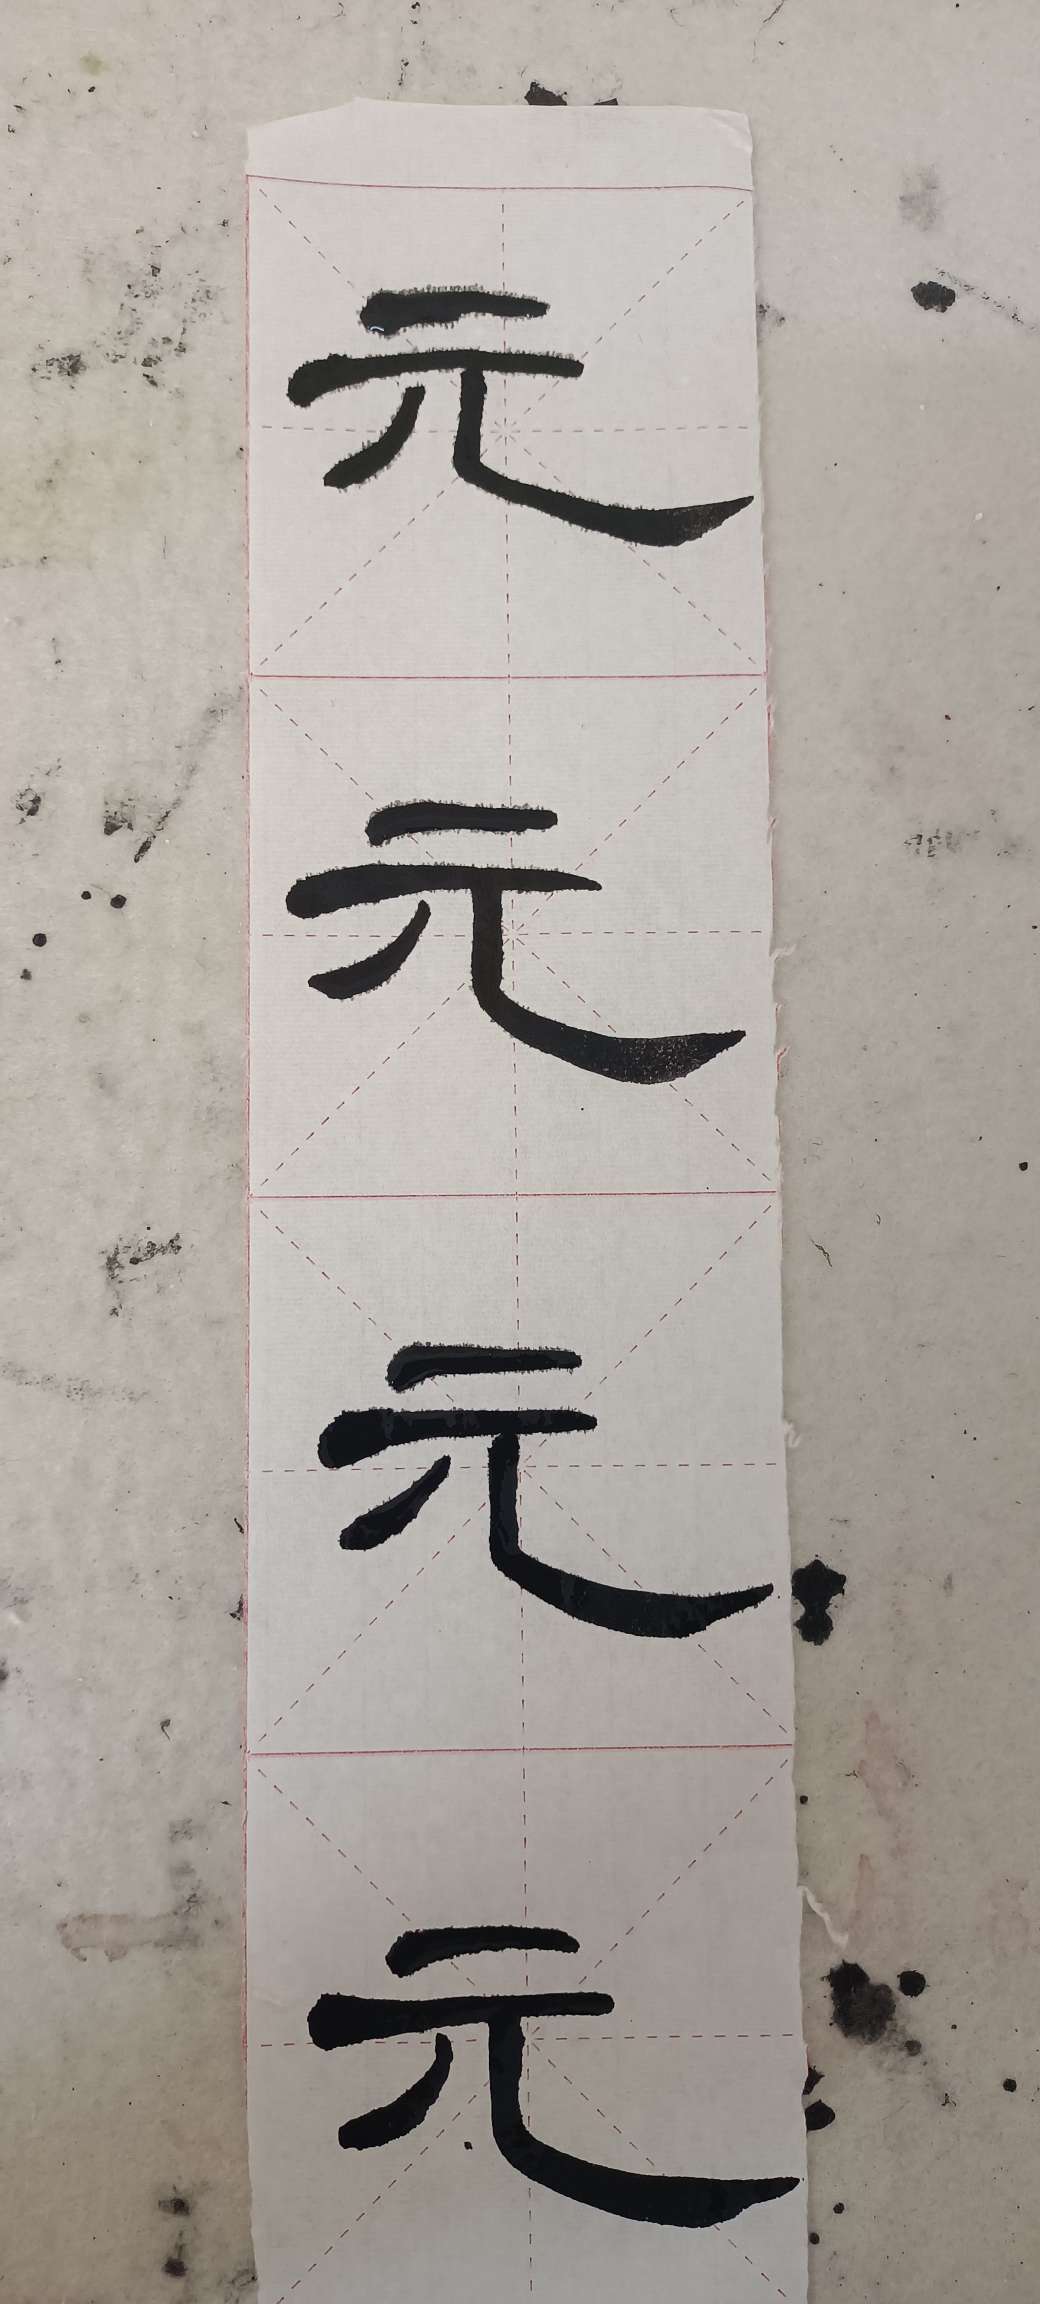 元
元
元
元